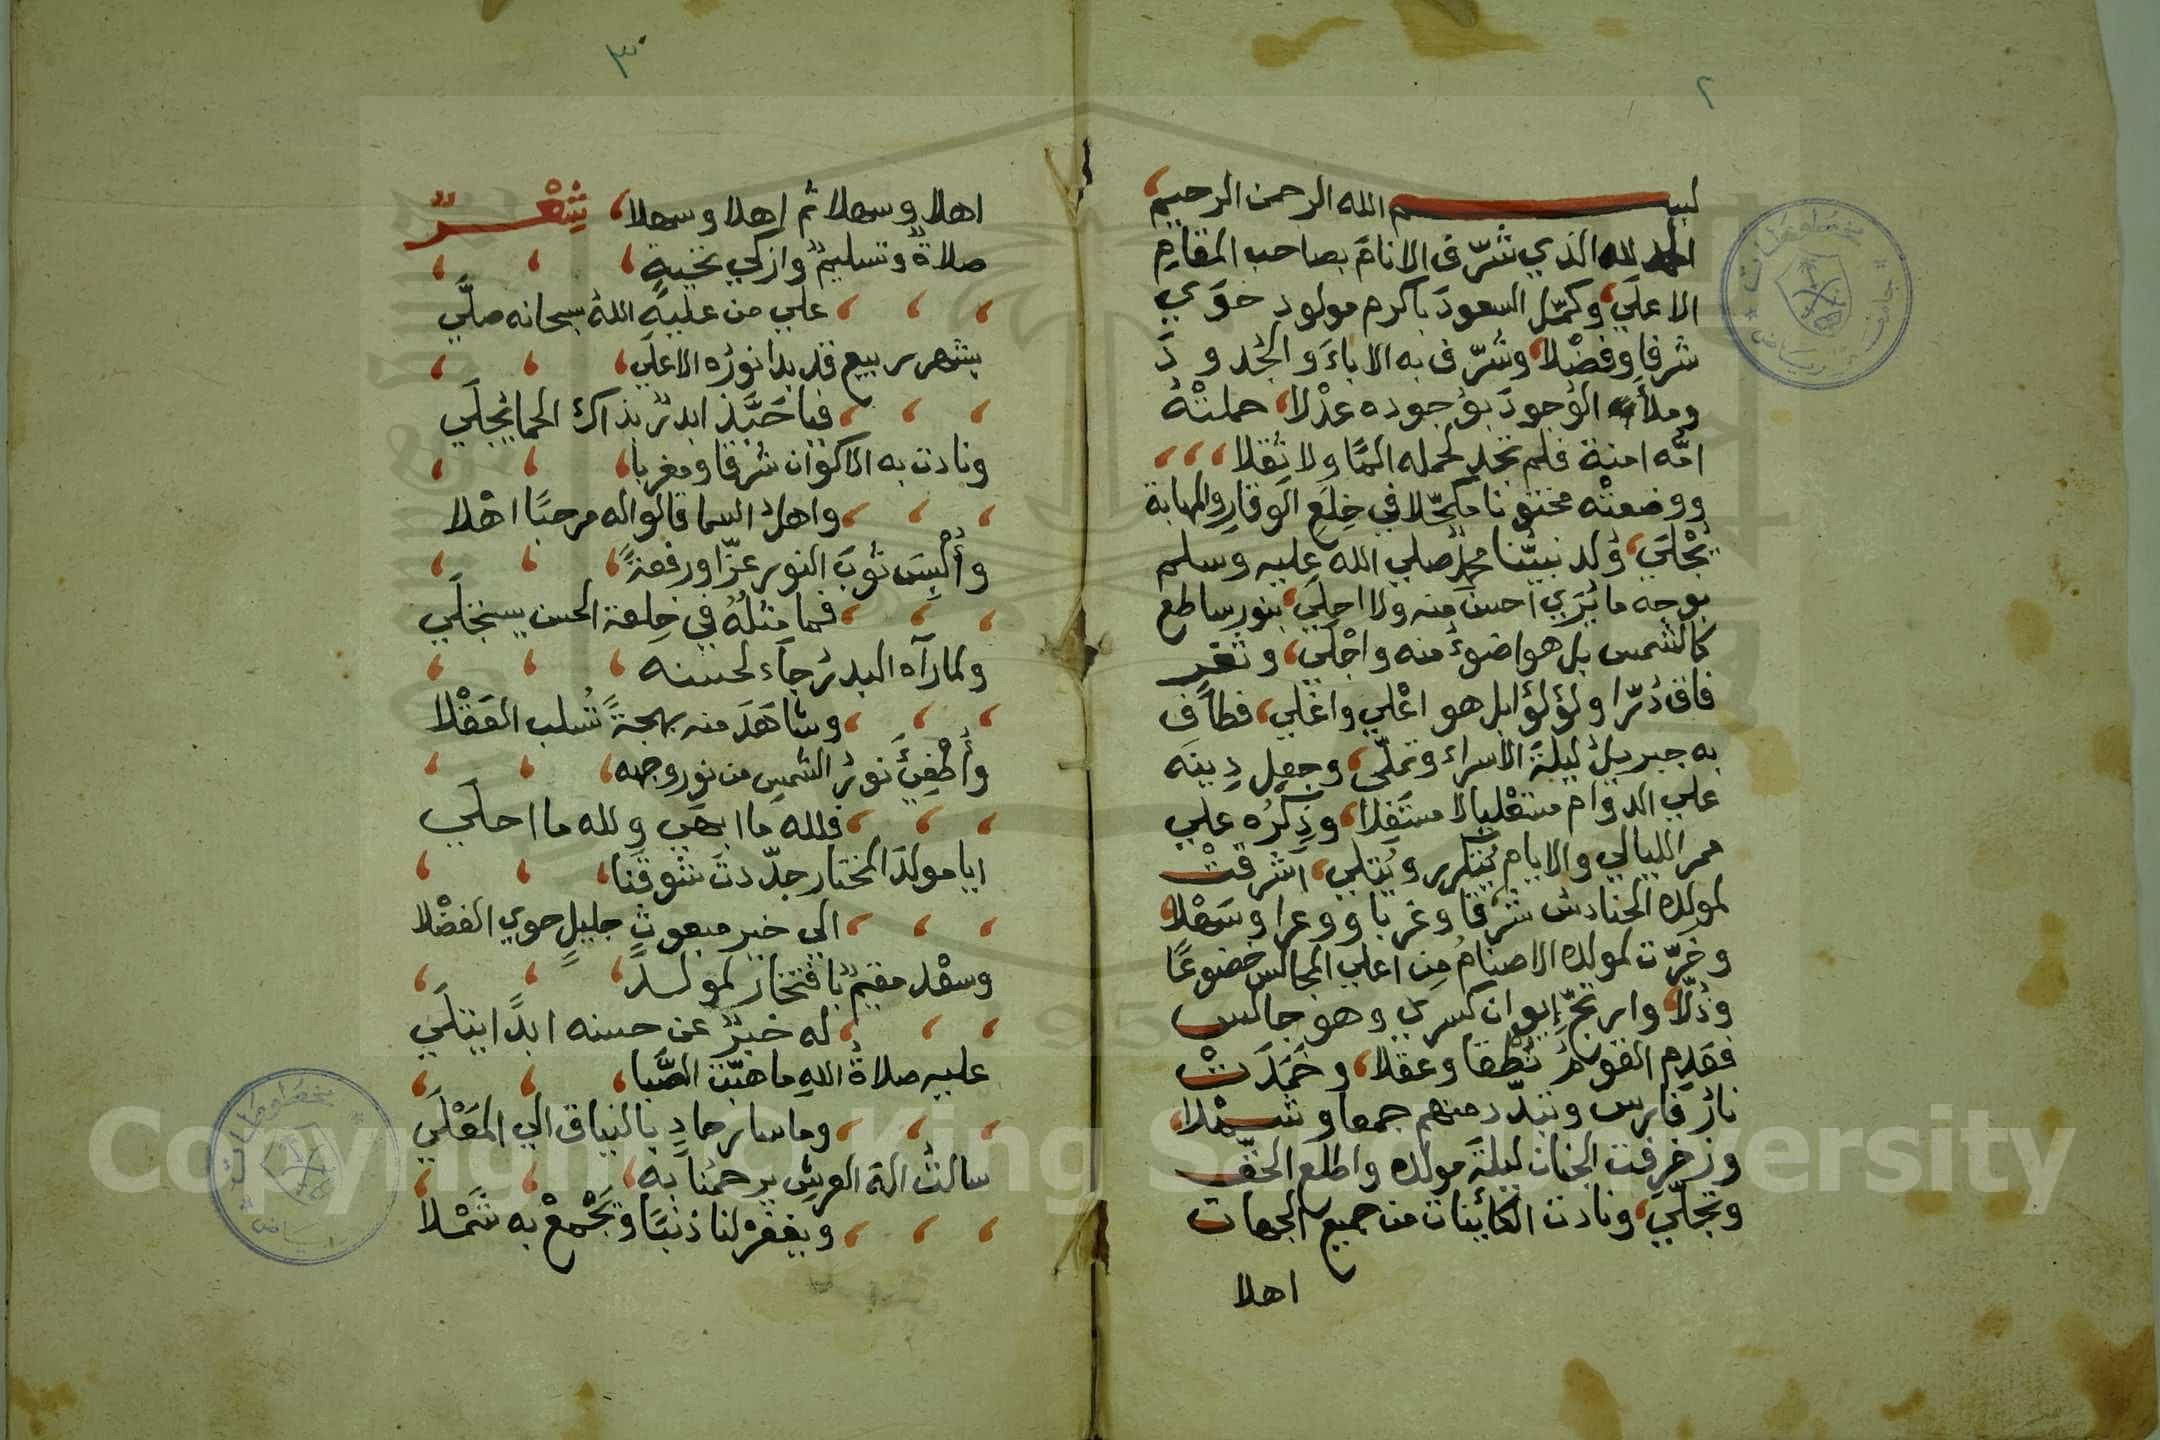 ٢
بسم الله الرحمن الرحيم
الحمد لله الذي شرّف الانامَ بصاحب المقامِ
الاعلَي وكمّل السعودَ باكرم مولود حوَي
شرفا وفضْلا وشرّف به الاباءَ والجُدودَ
وملأَ الوُجودَ بوُجوده عدْلا حملتْهُ
امّه امنة فلم تجد لحمله المًا ولا ثقلا
ووضعتْه مختونا مكحّلا في خِلَعِ الوقارِ والمهابة
يُجْلَي وُلد نبيّنا محمدٌ صلي الله عليه وسلم
بوجه ما يُرَي احسنَ منه ولا احلَي بنور ساطع
كالشمس بل هو اضوءُ منه واجْلَي وثغرٍ
فاق دُرّا ولؤلؤا بل هو اعْلي واغلَي فطافَ
به جبريلُ ليلةَ الاسراء وتملّي وجعل دِينَه
علي الدوام مستعْليا لا مستَفِلا وذِكرُه علي
ممر الليالي والايام يُتكرر ويُتلَي اشرقتْ
لمولده الحنادسُ شرْقا وغربا ووعرا وسَهْلا
وخرّت لمولده الاصنامُ مِن اعلي المجالس خضوعًا
وذُلّا وارتجّ إيوان كسري وهو جالس
فعَدِم القومُ نُطْقا وعقلا وخَمَدَتْ
نارُ فارس وتبدّد منهم جمعا وشملا
وزخرفت الجنان ليلةَ مولده واطلع الحقّ
وتجلّي ونادت الكائينات من جميع الجهات
اهلا
٣٠
اهلا وسهلا ثم اهلا وسهلا شِعْرٌ
صلاةٌ وتسليمٌ وازكي تحيةٍ
علي من عليه اللهُ سبحانه صلَّي
بشهر ربيع قد بدا نورُه الاعلَي
فيا حَبَّذ ابدرٌ بذاك الحما يُجلَي
ونادت به الاكوان شرقا ومغربا
واهلُ السما قالوا له مرحبًا اهْلا
وأُلْبِسَ ثوبَ النور عزّا ورفعةً
فما مثلُهُ في خِلعة الحسن يستجلَي
ولما رآه البدرُ جاء لحسنه
وشاهَدَ منه بهجةً تُسلب العَقْلا
وأُطْفِيَ نورُ الشمسِ من نور وجهه
فلله ما ابهَي ولله ما احلَي
ايا مولدَ المختار جدّدتَ شوقَنا
الي خير مبعوثٍ جليلٍ حوي الفضْلا
وسعْد مقيمٌ بافتخارٍ لمولدٍ
له خبرٌ عن حسنه ابدًا يتلَي
عليه صلاةُ اللهِ ما هبّت الصَّبا
وما سار حادٍ بالنياق الي المَعْلَي
سالتُ الهَ العرشِ يرحمُنا به
ويغفرْ لنا ذنبًا ويَجْمعْ به شَمْلا